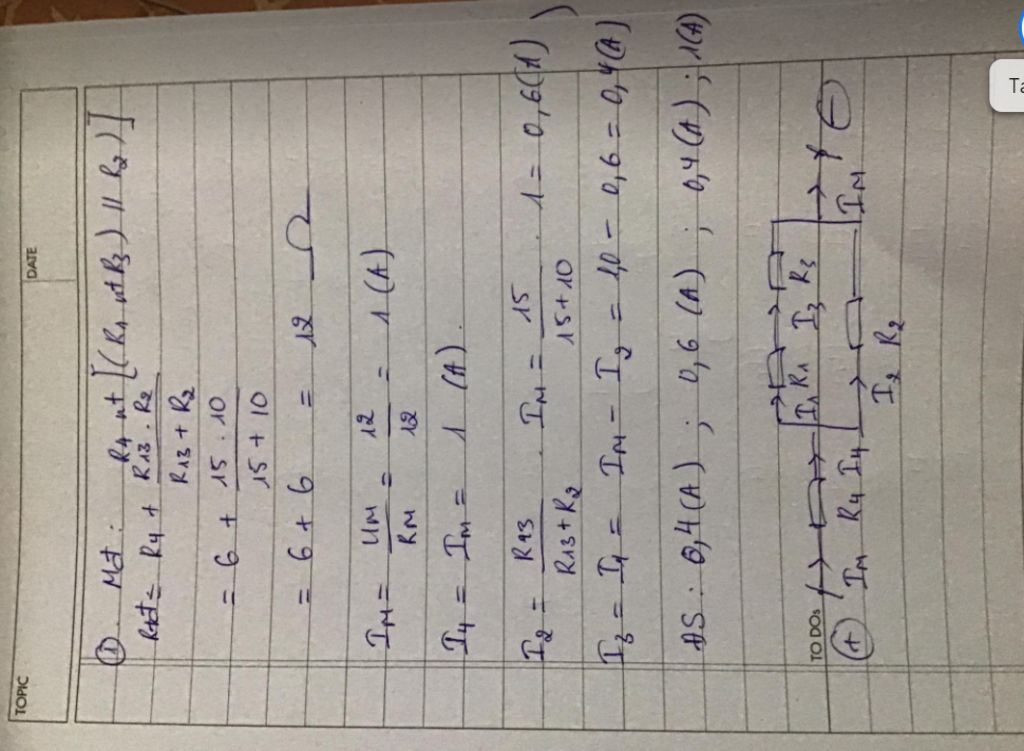 TOPIC
DATE
① Mct: R4 nt [(R1 nt R3) // R2)]
Rtđ = R4 + R13 . R2 / R13 + R2
= 6 + 15 . 10 / 15 + 10
= 6 + 6 = 12 Ω
IM = UM / RM = 12 / 12 = 1 (A)
I4 = IM = 1 (A).
I2 = R13 / R13 + R2 . IM = 15 / 15 + 10 . 1 = 0,6 (A)
I3 = I1 = IM - I2 = 1,0 - 0,6 = 0,4 (A)
ĐS: 0,4 (A) ; 0,6 (A) ; 0,4 (A) ; 1 (A)
TO DOs
I1 R1 I3 R3
+ IM R4 I4 IM -
I2 R2
Ta